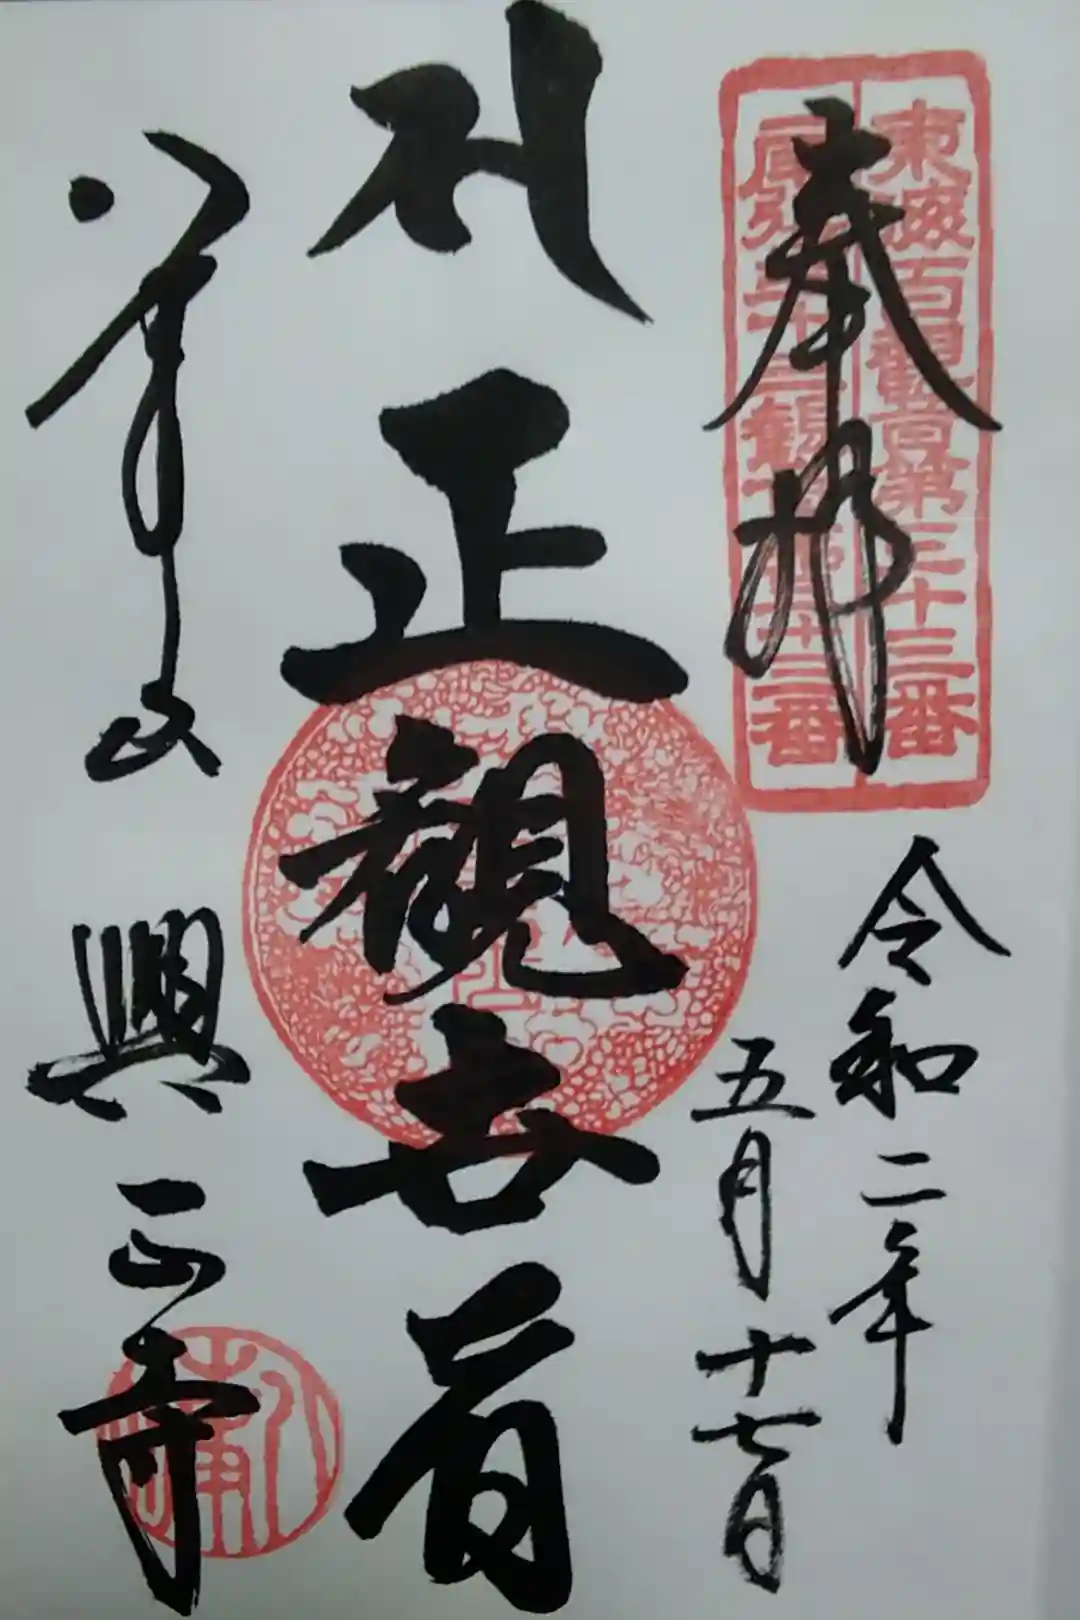 東海百観音第三十三番
尾張三十三観音第三十三番
奉拝
令和二年
五月十七日
正観世音
八事山
興正寺